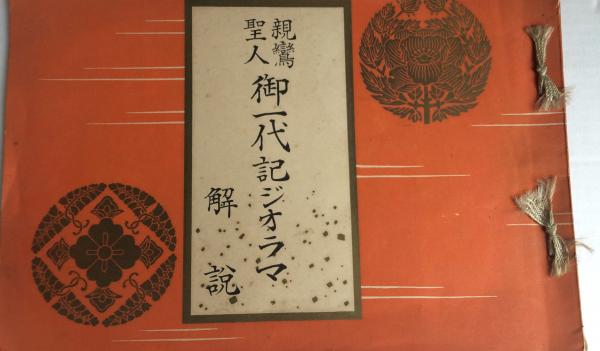 親鸞
聖人
御一代記ジオラマ
解説